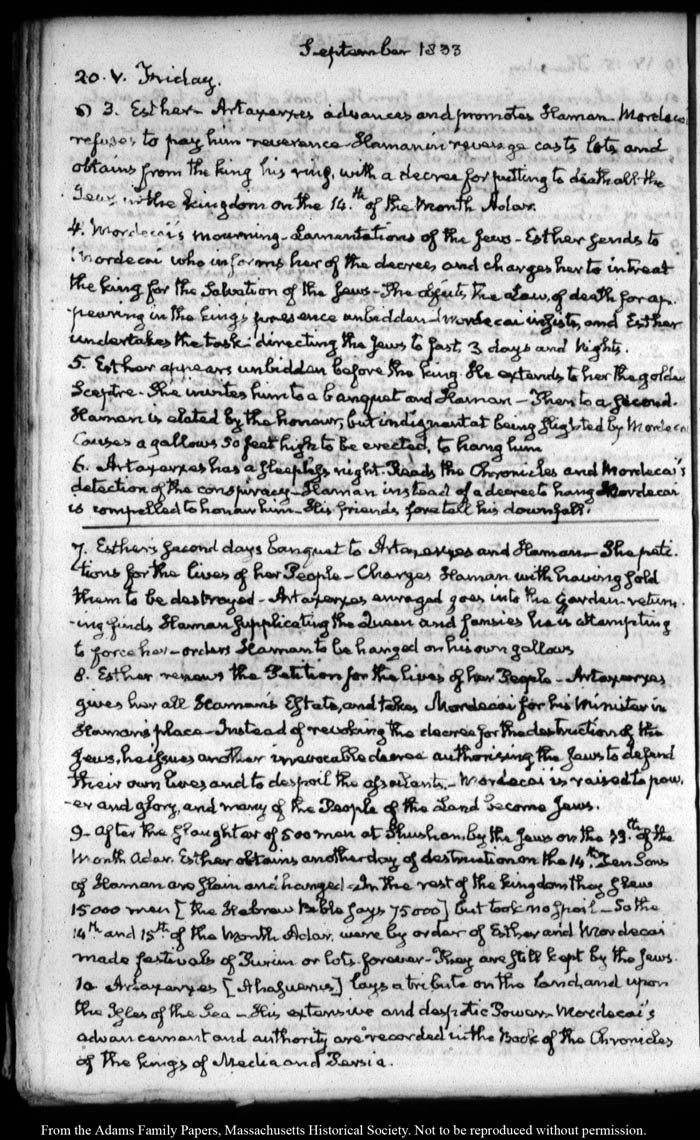 September 1833
20. V. Friday.
3. Esther - Artaxerxes advances and promotes Haman - Mordecai
refuses to pay him reverence - Haman in revenge casts lots and
obtains from the king his ring, with a decree for putting to death all the
Jews in the kingdom on the 14.th of the Month Adar.
4. Mordecai's mourning - Lamentations of the Jews - Esther sends to
Mordecai who informs her of the decree, and charges her to intreat
the king for the Salvation of the Jews - She objects the Law of death for ap-
-pearing in the kings presence unbidden - Mordecai insists, and Esther
undertakes the task directing the Jews to fast, 3 days and nights.
5. Esther appears unbidden before the king. He extends to her the golden
Sceptre. She invites him to a banquet and Haman - Then to a second.
Haman is elated by the honour, but indignant at being slighted by Mordecai
Causes a gallows 50 feet high to be erected, to hang him
6. Artaxerxes has a sleepless night. Reads the Chronicles and Mordecai's
detection of the conspiracy - Haman instead of a decree to hang Mordecai
is compelled to honour him - His friends foretell his downfall.
7. Esther's second days banquet to Artaxerxes and Haman - She peti-
-tions for the lives of her People - Charges Haman with having sold
them to be destroyed - Artaxerxes enraged goes into the Garden - return-
-ing finds Haman supplicating the Queen and fansies he is attempting
to force her - orders Haman to be hanged on his own gallows
8. Esther renews the Petition for the lives of her People - Artaxerxes
gives her all Haman's Estate, and takes Mordecai for his Minister in
Haman's place - Instead of revoking the decree for the destruction of the
Jews, he issues another irrevocable decree authorising the Jews to defend
their own lives and to despoil the assailants. - Mordecai is raised to pow-
-er and glory, and many of the People of the Land become Jews.
9. After the slaughter of 500 men at Shushan, by the Jews on the 13.th of the
Month Adar, Esther obtains another day of destruction on the 14.th Ten Sons
of Haman are slain and hanged - In the rest of the kingdom they slew
15000 men [the Hebrew Bible says 75000] but took no spoil - So the
14th and 15th of the Month Adar, were by order of Esther and Mordecai
made festivals of Purim or lots forever - They are still kept by the Jews.
10 Artaxerxes [Ahasuerus] lays a tribute on the Land, and upon
the Isles of the Sea - His extensive and despotic Power - Mordecai's
advancement and authority are recorded in the Book of the Chronicles
of the kings of Media and Persia.
From the Adams Family Papers, Massachusetts Historical Society. Not to be reproduced without permission.